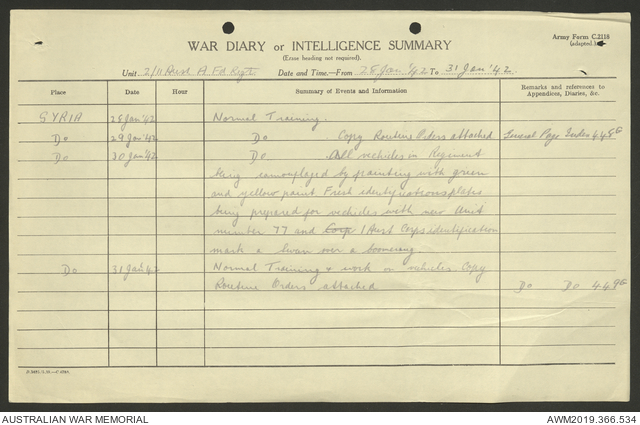 Army Form C.2118
(adapted.)
WAR DIARY or INTELLIGENCE SUMMARY
(Erase heading not required).
Unit 2/11 Aust A. Fd Regt Date and Time—From 28 Jan '42 To 31 Jan '42
Place Date Hour Summary of Events and Information Remarks and references to Appendices, Diaries, &c.
SYRIA 28 Jan '42 Normal Training.
Do 29 Jan '42 Do Copy Routine Orders attached General Page Index
Do 30 Jan '42 Do All vehicles in Regiment
being camouflaged by painting with green
and yellow paint. Fresh identifications plates
being prepared for vehicles with new Unit
number 77 and Corp 1 Aust Corps identification
mark a Swan over a boomerang
Do 31 Jan '42 Normal Training & work on vehicles. Copy
Routine Orders attached Do Do
AUSTRALIAN WAR MEMORIAL AWM2019.366.534